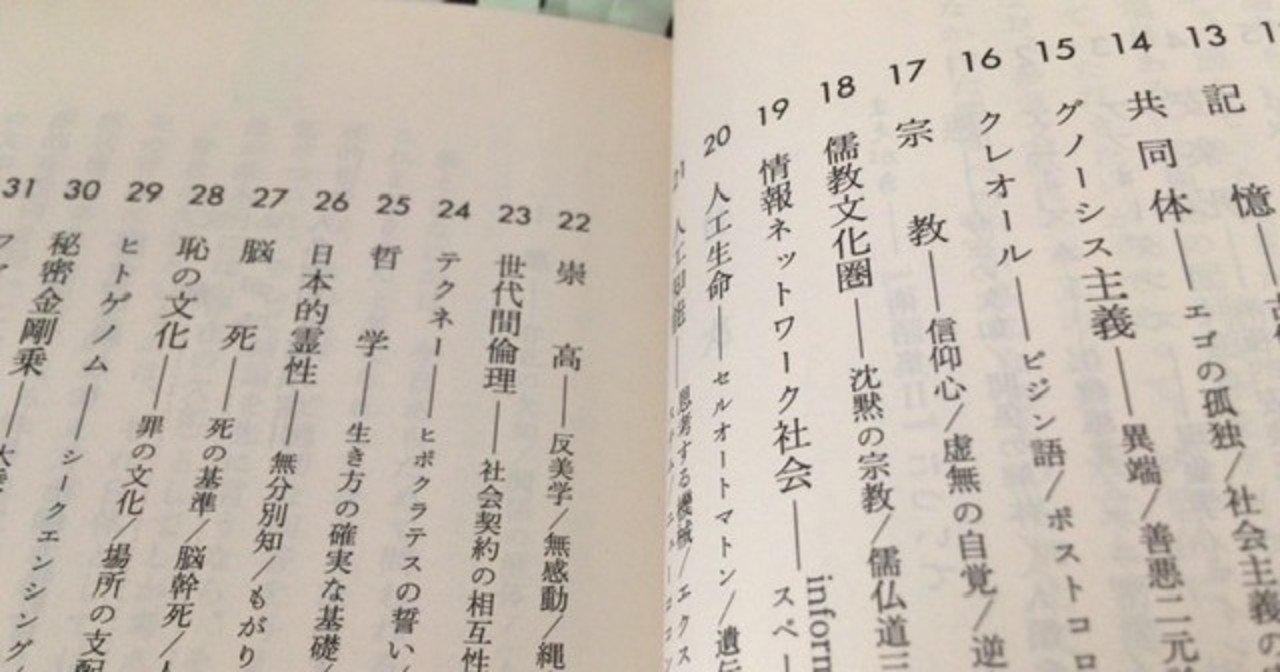 13 記憶――
14 共同体――エゴの孤独/社会主義の
15 グノーシス主義――異端/善悪二元の
16 クレオール――ピジン語/ポストコロ
17 宗教――信仰心/虚無の自覚/逆
18 儒教文化圏――沈黙の宗教/儒仏道三
19 情報ネットワーク社会――スペー
inform
20 人工生命――セルオートマトン/遺伝
21 人工知能――思考する機械/エクス
22 崇高――反美学/無感動/縄
23 世代間倫理――社会契約の相互性
24 テクネー――ヒポクラテスの誓い/
25 哲学――生き方の確実な基礎/
26 日本的霊性――無分別知/もがり
27 脳死――死の基準/脳幹死/
28 恥の文化――罪の文化/場所の支配
29 ヒトゲノム――シークエンシング/
30 秘密金剛乗――大
31 ファ